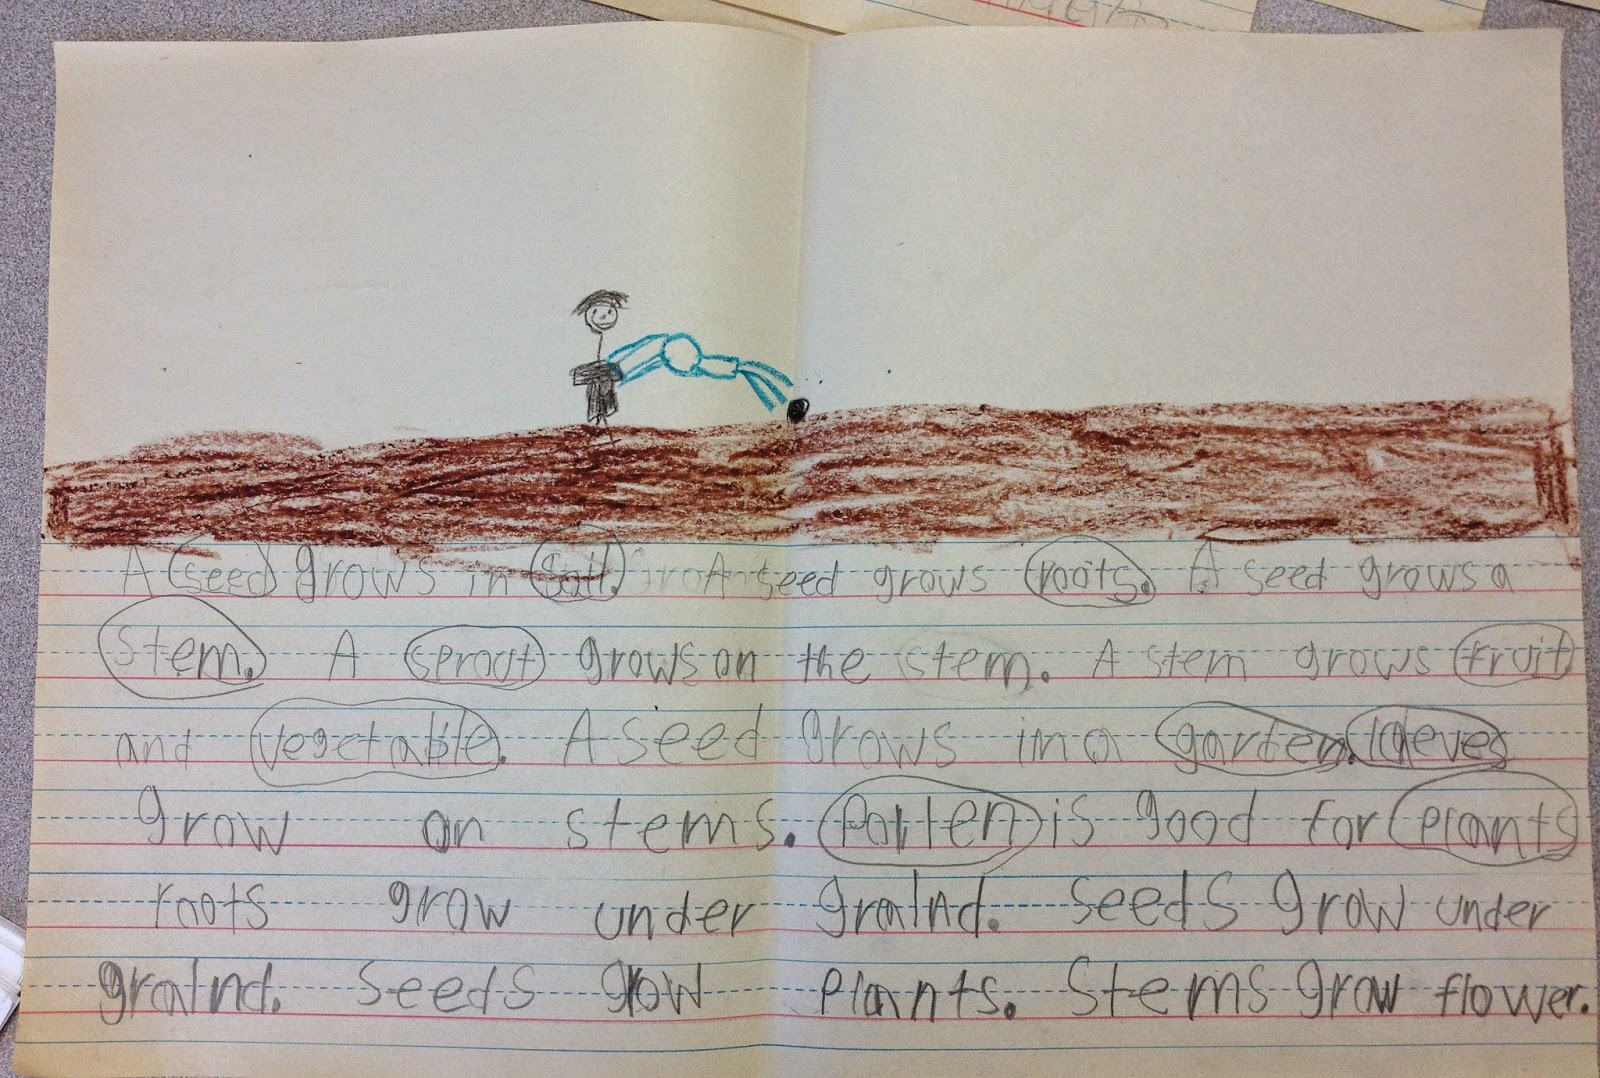 A seed grows in soil. A seed grows roots. A seed grows a
stem. A sprout grows on the stem. A stem grows fruit
and vegetable. A seed grows in a garden. laeves
grow on stems. Pollen is good for plants
roots grow under gralnd. Seeds grow under
gralnd. Seeds grow plants. Stems grow flower.